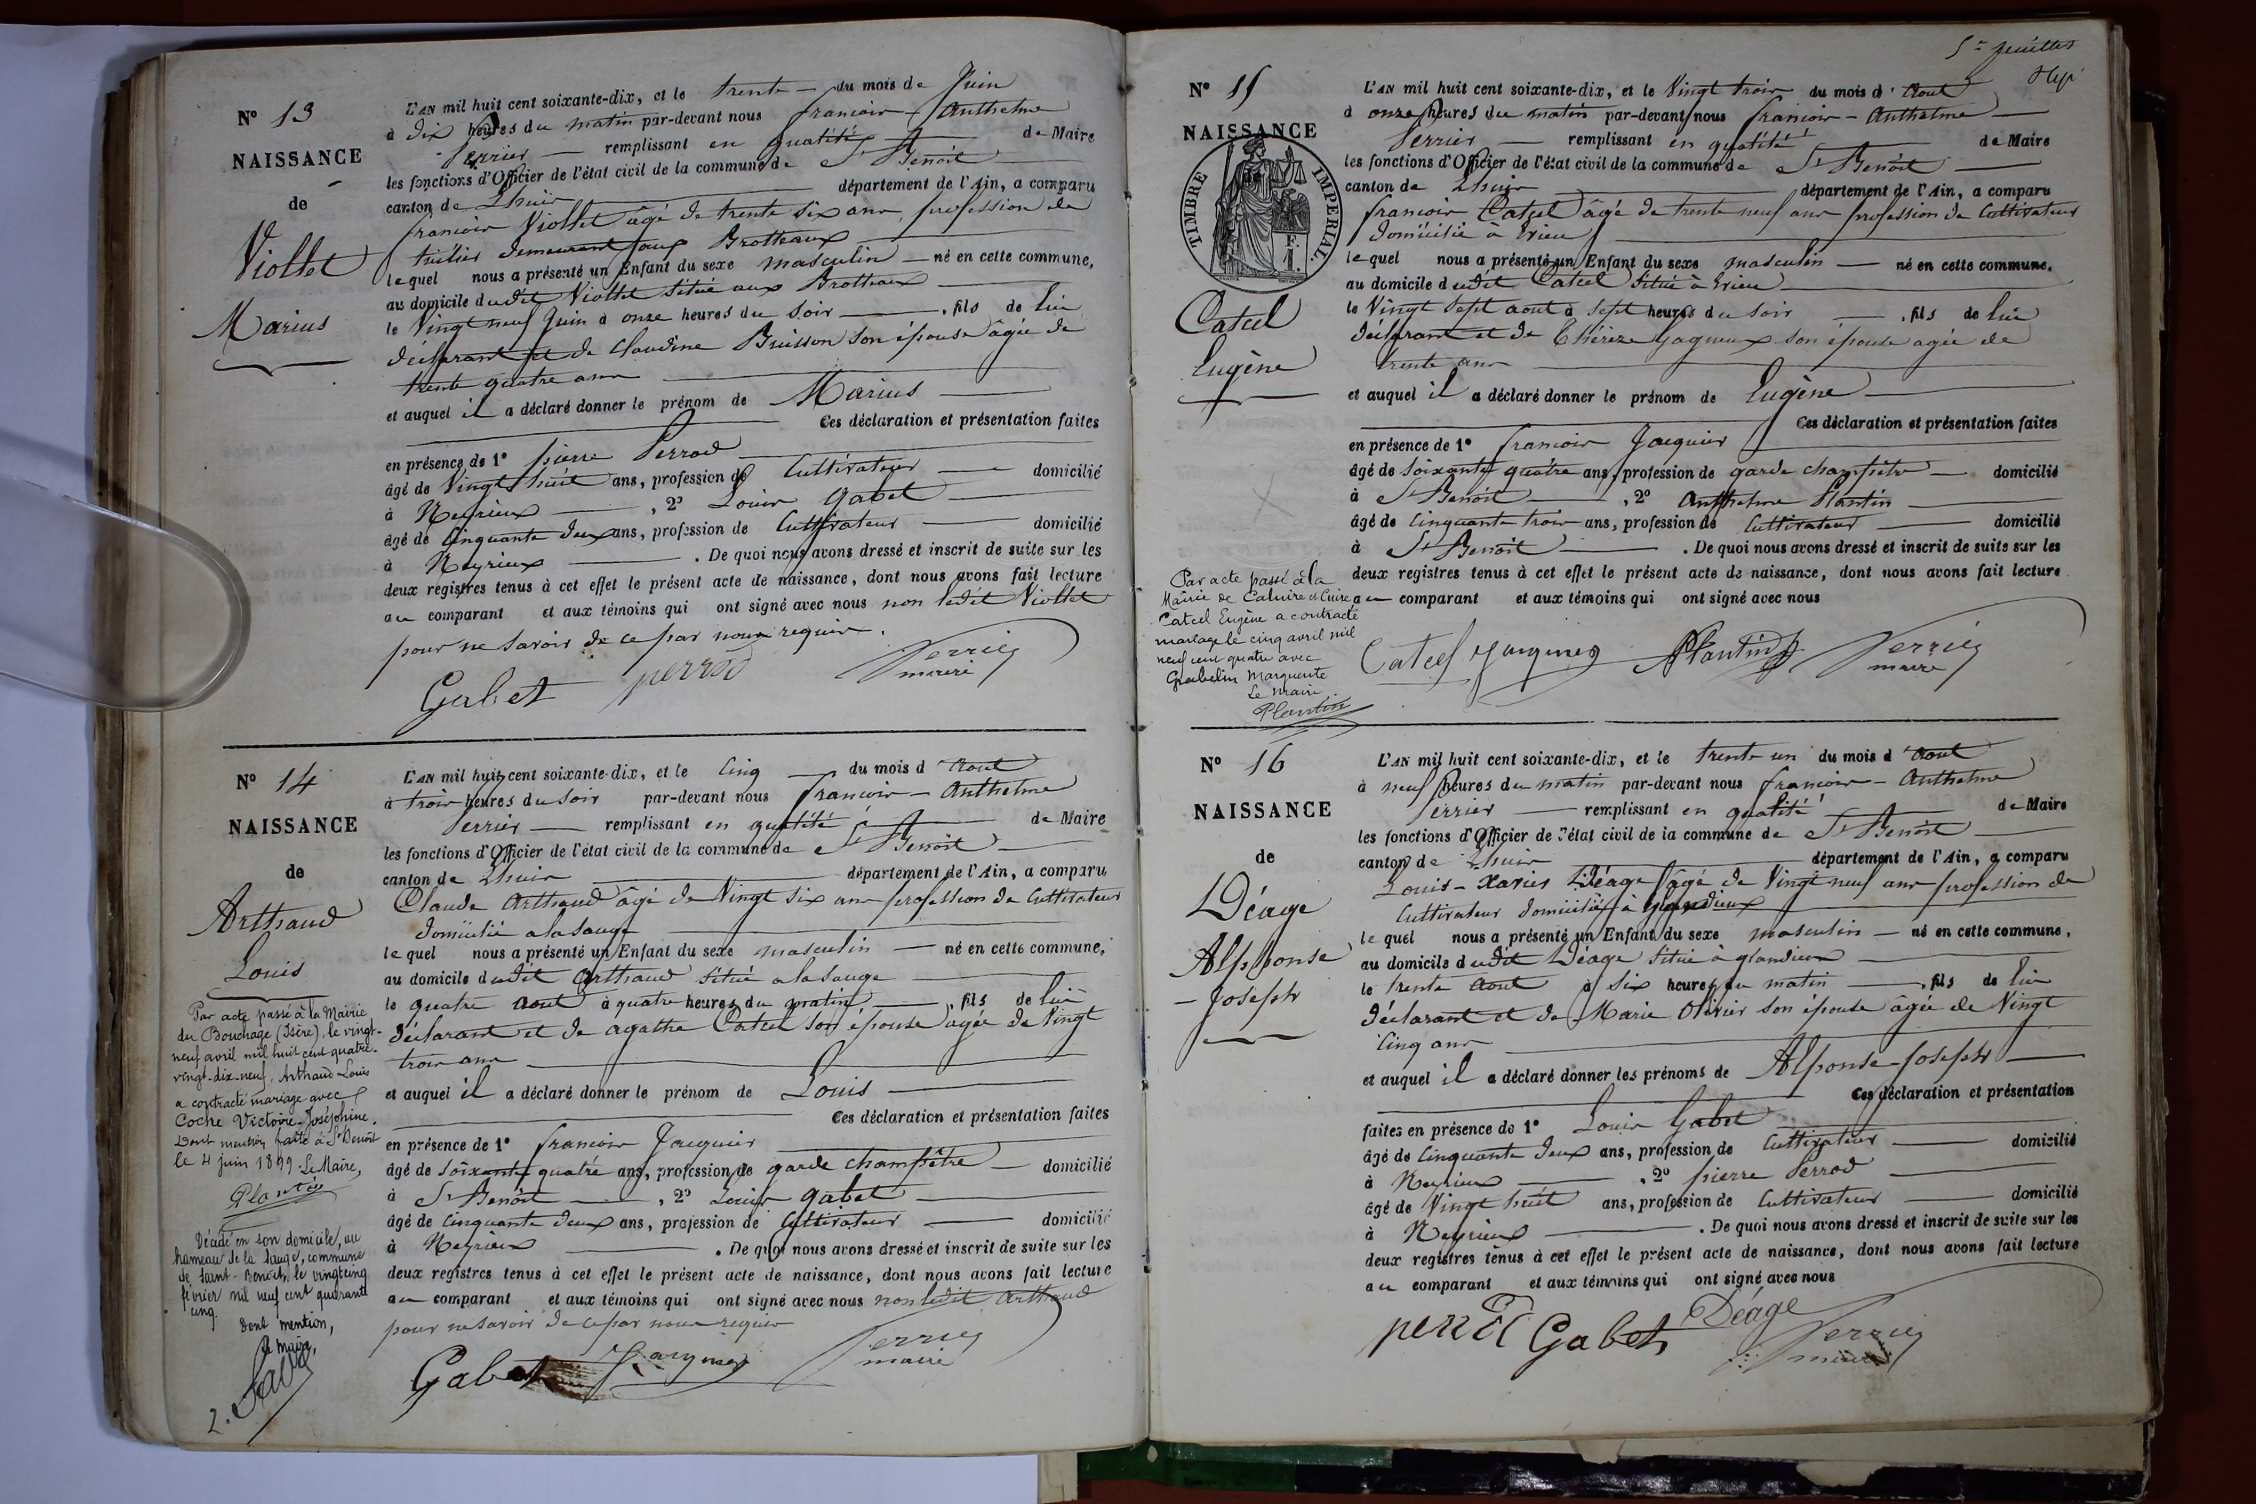 Nº 13
NAISSANCE
de
Viollet
Marius
L'AN mil huit cent soixante-dix, et le trente du mois de Juin
à dix heures du matin par-devant nous françois - Anthelme
Perrier remplissant en qualité de Maire
les fonctions d'Officier de l'état civil de la commune de St Benoit
canton de Lhuis département de l'Ain, a comparu
françois Viollet âgé de trente six ans, profession de
tuilier demeurant aux Brotteaux
lequel nous a présenté un Enfant du sexe masculin né en cette commune,
au domicile dudit Viollet situé aux Brotteaux
le Vingt neuf Juin à onze heures du soir, fils de lui
déclarant et de Claudine Buisson son épouse âgée de
trente quatre ans
et auquel il a déclaré donner le prénom de Marius
Ces déclaration et présentation faites
en présence de 1º pierre Perrod
âgé de Vingt huit ans, profession de Cultivateur domicilié
à Neyrieux, 2º Louis Gabet
âgé de cinquante deux ans, profession de Cultivateur domicilié
à Neyrieux. De quoi nous avons dressé et inscrit de suite sur les
deux registres tenus à cet effet le présent acte de naissance, dont nous avons fait lecture
au comparant et aux témoins qui ont signé avec nous non ledit Viollet
pour ne savoir de ce par nous requis.
Gabet perrod Perrier
maire
Nº 14
NAISSANCE
de
Arthaud
Louis
Par acte passé à la Mairie
du Bouchage (Isère), le vingt-
neuf avril mil huit cent quatre-
vingt-dix-neuf, Arthaud Louis
a contracté mariage avec
Coche Victoire-Joséphine.
Dont mention faite à St Benoit
le 4 juin 1899. Le Maire,
Plantin
Décédé en son domicile, au
hameau de la Sauge, commune
de Saint-Benoit, le vingt cinq
février mil neuf cent quarante
cinq.
Dont mention,
Le maire,
L'AN mil huit cent soixante-dix, et le cinq du mois d'Aout
à trois heures du soir par-devant nous françois - Anthelme
Perrier remplissant en qualité de Maire
les fonctions d'Officier de l'état civil de la commune de St Benoit
canton de Lhuis département de l'Ain, a comparu
Claude Arthaud âgé de Vingt six ans profession de Cultivateur
domicilié a la Sauge
lequel nous a présenté un Enfant du sexe masculin né en cette commune,
au domicile dudit Arthaud situé a la Sauge
le quatre Aout à quatre heures du matin, fils de lui
déclarant et de agathe Catcel son épouse âgée de Vingt
trois ans
et auquel il a déclaré donner le prénom de Louis
Ces déclaration et présentation faites
en présence de 1º françois Jacquier
âgé de soixante quatre ans, profession de garde champêtre domicilié
à St Benoit, 2º Louis Gabet
âgé de cinquante deux ans, profession de Cultivateur domicilié
à Neyrieux. De quoi nous avons dressé et inscrit de suite sur les
deux registres tenus à cet effet le présent acte de naissance, dont nous avons fait lecture
au comparant et aux témoins qui ont signé avec nous non ledit Arthaud
pour ne savoir de ce par nous requis
Gabet Jacquier Perrier
maire
5e feuillet
Nº 15
NAISSANCE
TIMBRE IMPERIAL.
Catcel
Eugène
Par acte passé à la
Mairie de Caluire et Cuire
Catcel Eugène a contracté
mariage le cinq avril mil
neuf cent quatre avec
Grabelin Marguerite
Le Maire
Plantin
L'AN mil huit cent soixante-dix, et le Vingt trois du mois d'Aout
à onze heures du matin par-devant nous françois - Anthelme
Perrier remplissant en qualité de Maire
les fonctions d'Officier de l'état civil de la commune de St Benoit
canton de Lhuis département de l'Ain, a comparu
françois Catcel âgé de trente neuf ans profession de Cultivateur
domicilié à Evieu
lequel nous a présenté un Enfant du sexe masculin né en cette commune,
au domicile dudit Catcel situé à Evieu
le Vingt sept aout à sept heures du soir, fils de lui
déclarant et de Thérèze Gagneux son épouse agée de
trente ans
et auquel il a déclaré donner le prénom de Eugène
Ces déclaration et présentation faites
en présence de 1º françois Jacquier
âgé de soixante quatre ans, profession de garde champêtre domicilié
à St Benoit, 2º Anthelme Plantin
âgé de cinquante trois ans, profession de Cultivateur domicilié
à St Benoit. De quoi nous avons dressé et inscrit de suite sur les
deux registres tenus à cet effet le présent acte de naissance, dont nous avons fait lecture
au comparant et aux témoins qui ont signé avec nous
Catcel Jacquier Plantin Perrier
maire
Nº 16
NAISSANCE
de
Déage
Alphonse
- Joseph
L'AN mil huit cent soixante-dix, et le trente un du mois d'Aout
à neuf heures du matin par-devant nous françois - Anthelme
Perrier remplissant en qualité de Maire
les fonctions d'Officier de l'état civil de la commune de St Benoit
canton de Lhuis département de l'Ain, a comparu
Louis - Xavier Déage âgé de Vingt neuf ans profession de
Cultivateur domicilié à glandieux
lequel nous a présenté un Enfant du sexe masculin né en cette commune,
au domicile dudit Déage situé à glandieux
le trente Aout à six heures du matin, fils de lui
déclarant et de Marie Olivier son épouse âgée de Vingt
cinq ans
et auquel il a déclaré donner les prénoms de Alphonse-Joseph
Ces déclaration et présentation
faites en présence de 1º Louis Gabet
âgé de cinquante deux ans, profession de Cultivateur domicilié
à Neyrieux, 2º pierre Perrod
âgé de Vingt huit ans, profession de Cultivateur domicilié
à Neyrieux. De quoi nous avons dressé et inscrit de suite sur les
deux registres tenus à cet effet le présent acte de naissance, dont nous avons fait lecture
au comparant et aux témoins qui ont signé avec nous
perrod Gabet Déage Perrier
maire